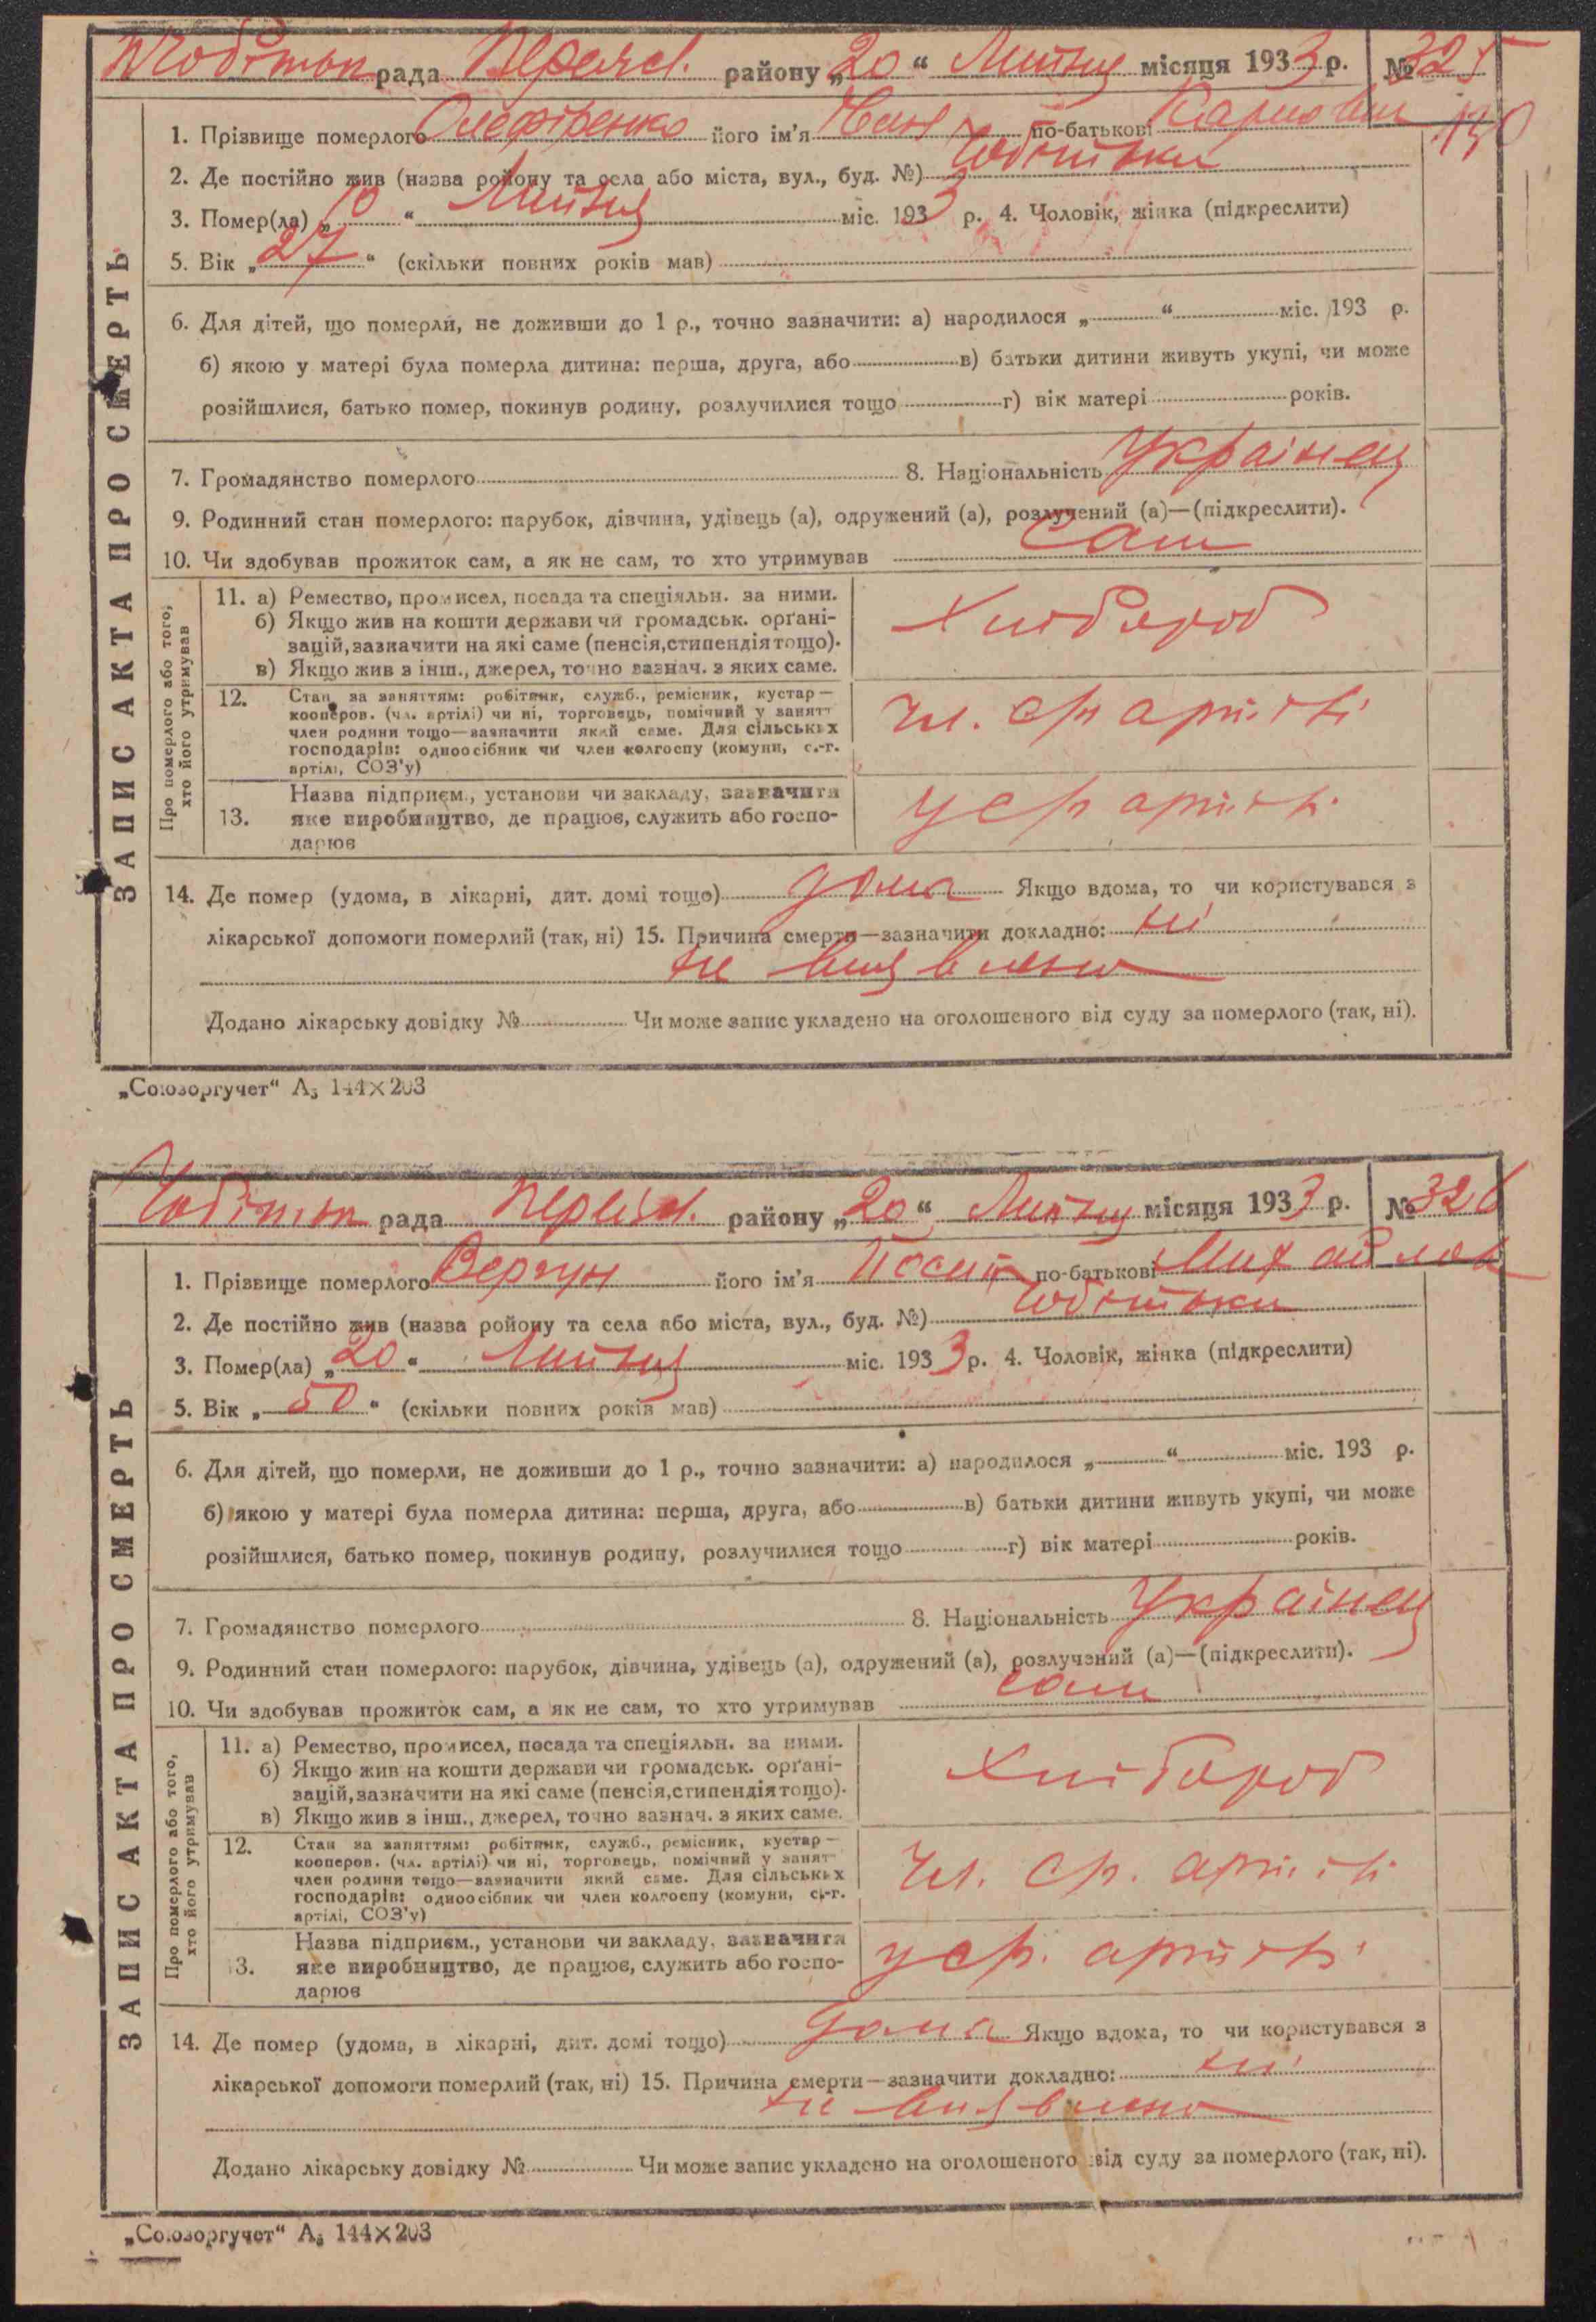 рада Переясл. району „20“ Липня місяця 1933 р. № 325
1. Прізвище померлого Олефіренко його ім'я Іван по-батькові Карпович
190
2. Де постійно жив (назва ройону та села або міста, вул., буд. №) Чобітьки
3. Помер(ла) „10“ Липня міс. 1933 р. 4. Чоловік, жінка (підкреслити)
5. Вік „27“ (скільки повних років мав)
6. Для дітей, що померли, не доживши до 1 р., точно зазначити: а) народилося „ “ міс. 193 р.
б) якою у матері була померла дитина: перша, друга, або в) батьки дитини живуть укупі, чи може
розійшлися, батько помер, покинув родину, розлучилися тощо г) вік матері років.
7. Громадянство померлого 8. Національність Українец
9. Родинний стан померлого: парубок, дівчина, удівець (а), одружений (а), розлучений (а)—(підкреслити).
10. Чи здобував прожиток сам, а як не сам, то хто утримував сам
Про померлого або того, хто його утримував
11. а) Ремество, промисел, посада та спеціяльн. за ними.
б) Якщо жив на кошти держави чи громадськ. орґані-
зацій, зазначити на які саме (пенсія, стипендія тощо).
в) Якщо жив з інш., джерел, точно зазнач. з яких саме.
Хлібороб
12. Стан за заняттям: робітник, служб., ремісник, кустар—
кооперов. (чл. артілі) чи ні, торговець, помічний у занятт
член родини тощо—зазначити який саме. Для сільських
господарів: одноосібник чи член колгоспу (комуни, с.-г.
артілі, СОЗ'у)
чл. с/г артілі
13. Назва підприєм., установи чи закладу, зазначити
яке виробництво, де працює, служить або госпо-
дарює
у с/г артілі
14. Де помер (удома, в лікарні, дит. домі тощо) дома Якщо вдома, то чи користувався з
лікарської допомоги померлий (так, ні) 15. Причина смерти—зазначити докладно: ні
не виявлено
Додано лікарську довідку № Чи може запис укладено на оголошеного від суду за померлого (так, ні).
ЗАПИС АКТА ПРО СМЕРТЬ
„Союзоргучет“ А₅ 144×203
рада Переясл. району „20“ Липня місяця 1933 р. № 326
1. Прізвище померлого Вергун його ім'я Йосип по-батькові Михайлов
2. Де постійно жив (назва ройону та села або міста, вул., буд. №) Чобітьки
3. Помер(ла) „20“ Липня міс. 1933 р. 4. Чоловік, жінка (підкреслити)
5. Вік „50“ (скільки повних років мав)
6. Для дітей, що померли, не доживши до 1 р., точно зазначити: а) народилося „ “ міс. 193 р.
б) якою у матері була померла дитина: перша, друга, або в) батьки дитини живуть укупі, чи може
розійшлися, батько помер, покинув родину, розлучилися тощо г) вік матері років.
7. Громадянство померлого 8. Національність Українец
9. Родинний стан померлого: парубок, дівчина, удівець (а), одружений (а), розлучений (а)—(підкреслити).
10. Чи здобував прожиток сам, а як не сам, то хто утримував сам
Про померлого або того, хто його утримував
11. а) Ремество, промисел, посада та спеціяльн. за ними.
б) Якщо жив на кошти держави чи громадськ. орґані-
зацій, зазначити на які саме (пенсія, стипендія тощо).
в) Якщо жив з інш., джерел, точно зазнач. з яких саме.
Хлібороб
12. Стан за заняттям: робітник, служб., ремісник, кустар—
кооперов. (чл. артілі) чи ні, торговець, помічний у занят
член родини тощо—зазначити який саме. Для сільських
господарів: одноосібник чи член колгоспу (комуни, с.-г.
артілі, СОЗ'у)
чл. с/г. артілі
13. Назва підприєм., установи чи закладу, зазначити
яке виробництво, де працює, служить або госпо-
дарює
у с/г. артілі
14. Де помер (удома, в лікарні, дит. домі тощо) дома Якщо вдома, то чи користувався з
лікарської допомоги померлий (так, ні) 15. Причина смерти—зазначити докладно: ні
не виявлено
Додано лікарську довідку № Чи може запис укладено на оголошеного від суду за померлого (так, ні).
ЗАПИС АКТА ПРО СМЕРТЬ
„Союзоргучет“ А₅ 144×203